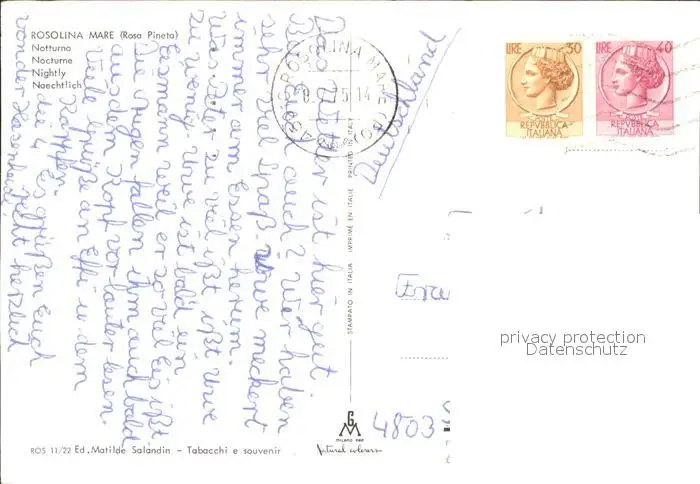 ROSOLINA MARE (Rosa Pineta)
Notturno
Nocturne
Nightly
Naechtlich
LIRE 30
REPVBBLICA
ITALIANA
LIRE 40
REPVBBLICA
ITALIANA
ROSOLINA MARE (RO)
Deutschland
Das Wetter ist hier gut
Bei Euch auch? Wir haben
sehr viel Spaß. Uwe meckert
immer am Essen herum.
Was Peter zu viel ißt ißt Uwe
zu wenig. Uwe ist bald ein
Eismann weil er so viel Eis ißt.
Die Augen fallen ihm auch bald
aus dem Kopf vor lauter lesen.
Viele Grüße an Effi u dem
die 4 Es grüßen Euch
von der Hasenheide herzlich
STAMPATO IN ITALIA IMPRIMÉ EN ITALIE PRINTED IN ITALY
Frau
4803
privacy protection
Datenschutz
GM
MILANO
ROS 11/22 Ed. Matilde Salandin - Tabacchi e souvenir
Natural colours